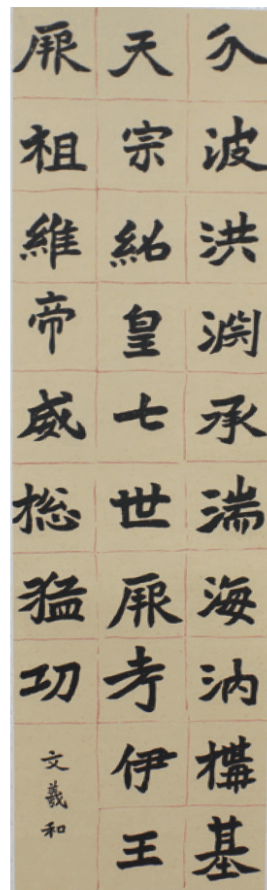 分波洪渊承湍海汭構基
天宗紹皇七世厥考伊王
厥祖維帝威揔猛功
文羲和